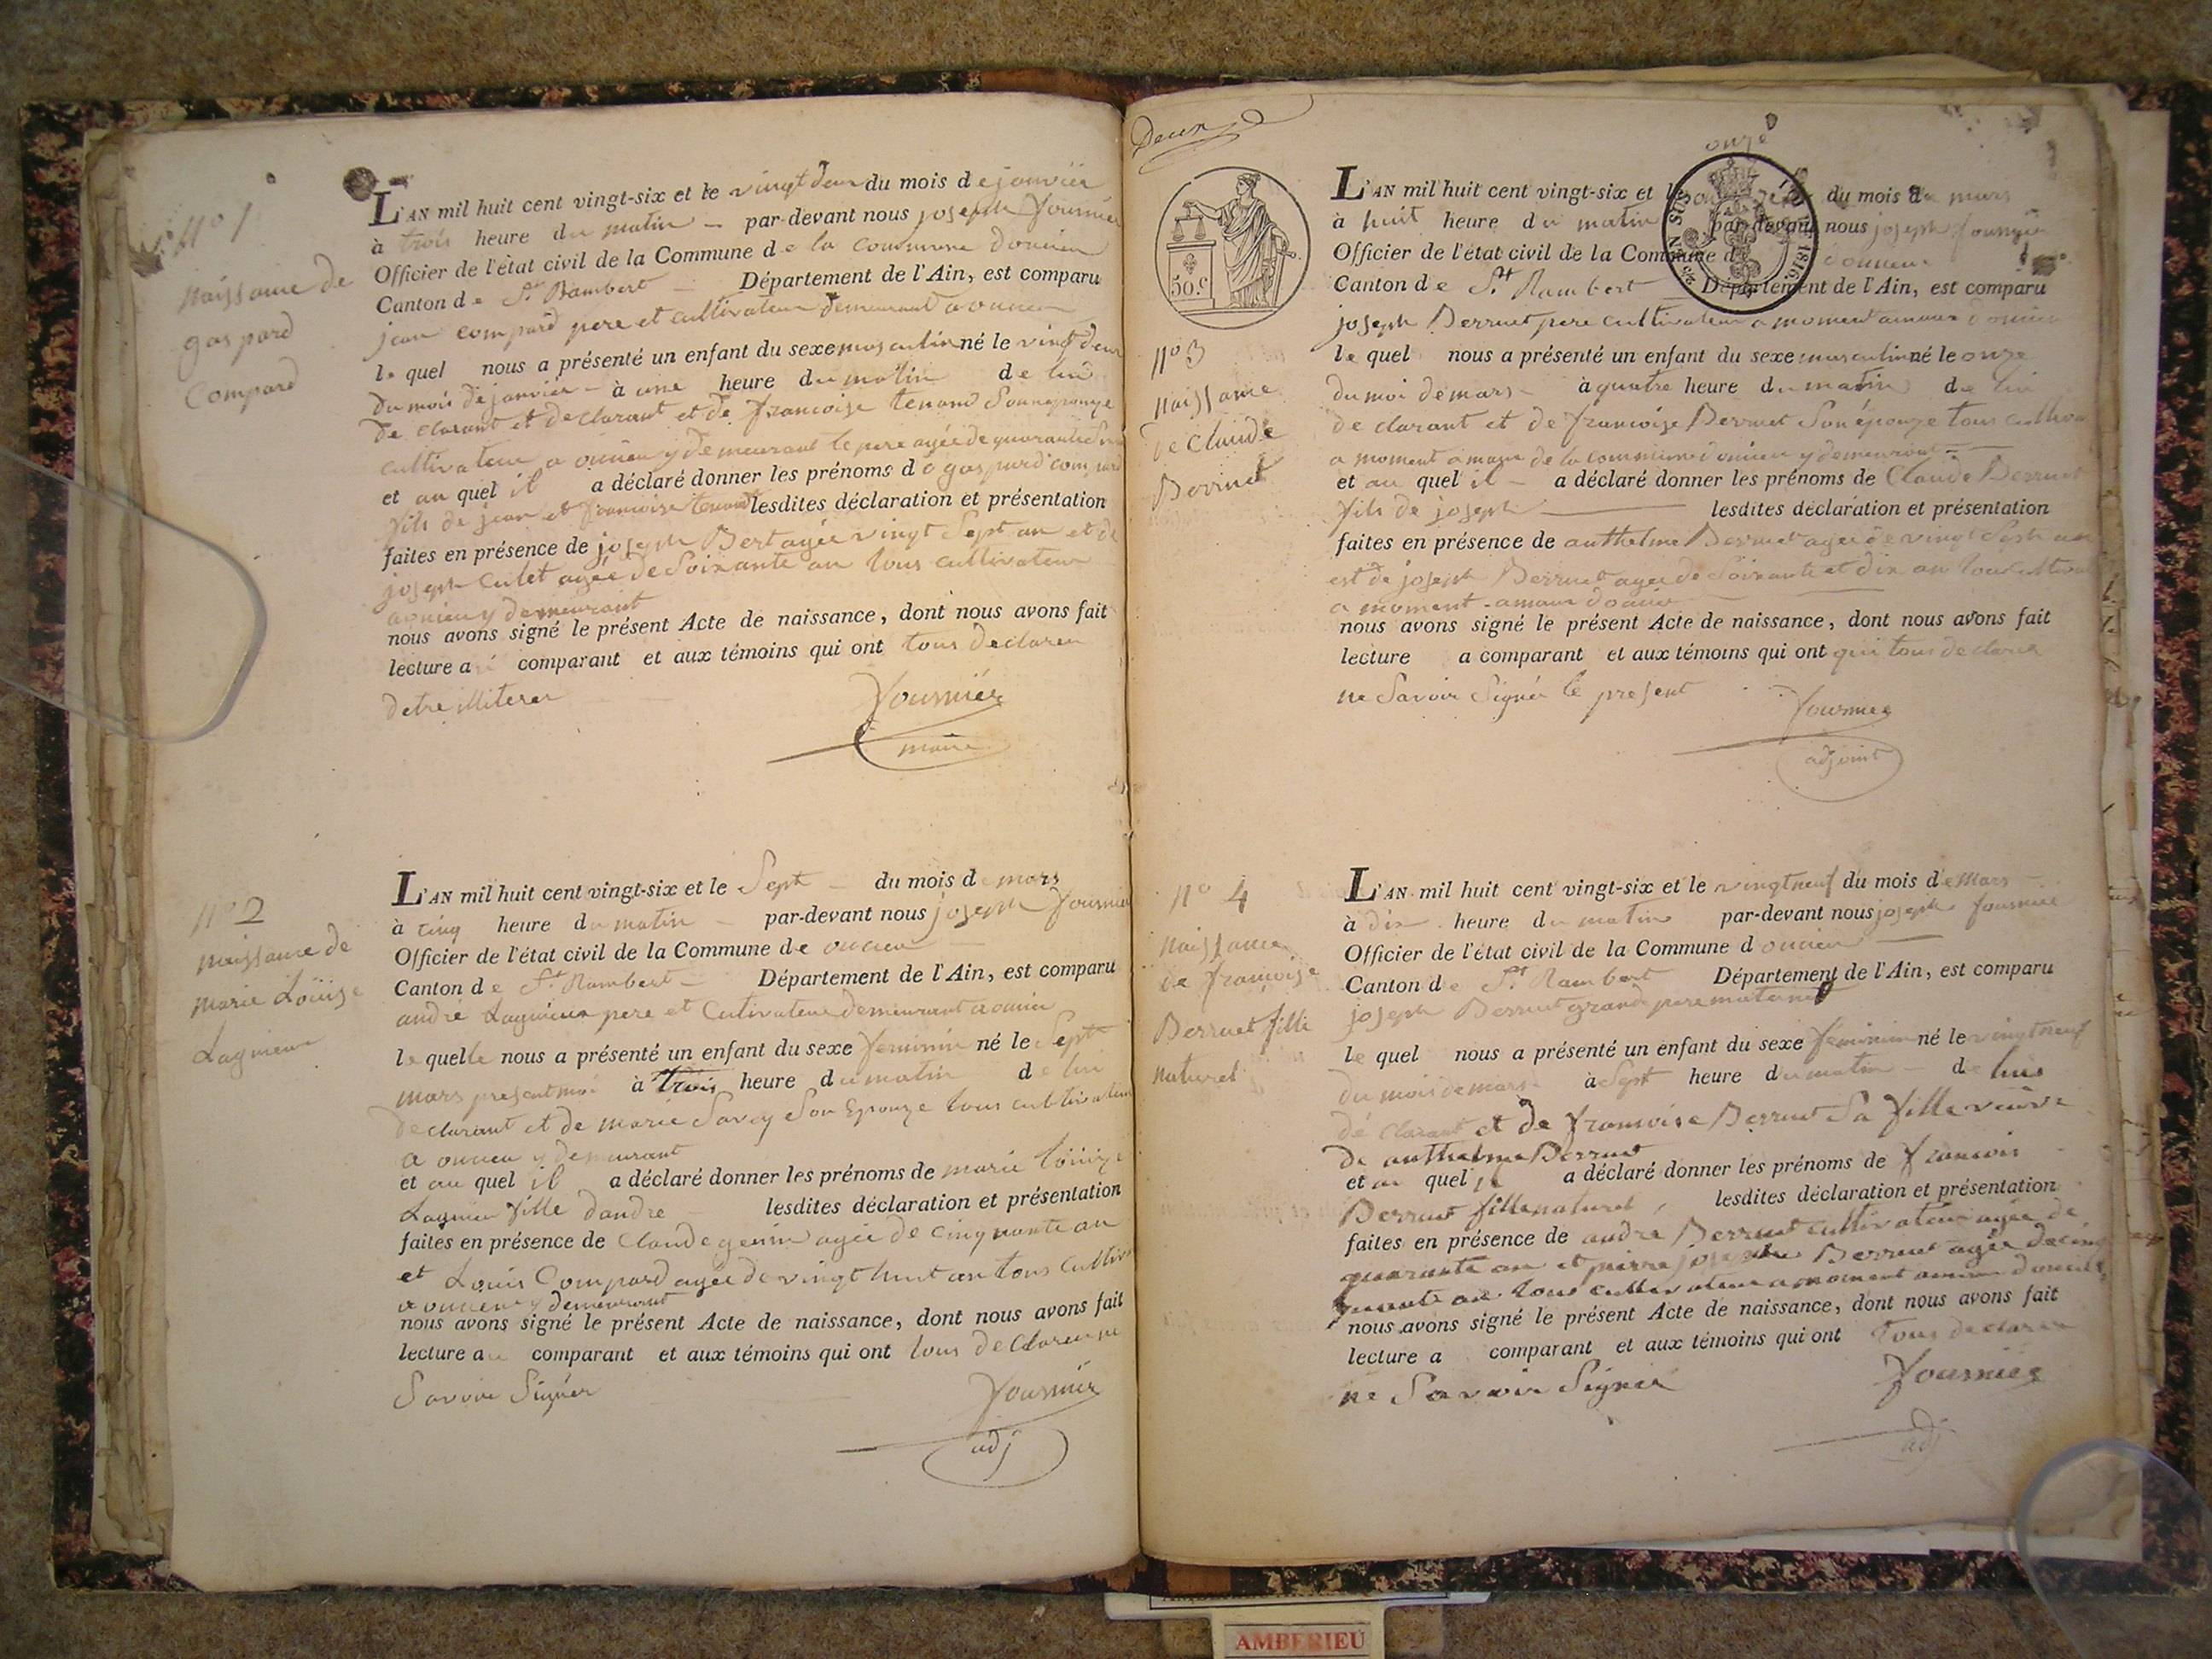 N° 1
naissance de
gaspard
Compard
L'AN mil huit cent vingt-six et le vingt deux du mois de janvier
à trois heure du matin par-devant nous joseph fournier
Officier de l'état civil de la Commune de la commune doncieu
Canton de St. Rambert Département de l'Ain, est comparu
jean compard pere et cultivateur demeurant a oncieu
le quel nous a présenté un enfant du sexe masculin né le vingt deux
du mois de janvier à une heure du matin de lui
de clarant et declarant et de francoise tenand Son epouze
cultivateur a oncieu y demeurant le pere agée de quarante
et au quel il a déclaré donner les prénoms de gaspard compard
fils de jean et francoise tenand lesdites déclaration et présentation
faites en présence de joseph Bert agée vingt Sept an et de
joseph Culet agée de Soixante an tous cultivateur
a oncieu y demeurant
nous avons signé le présent Acte de naissance, dont nous avons fait
lecture au comparant et aux témoins qui ont tous declaren
detre illiterer
fournier
maire
N° 2
naissance de
marie Loüize
Lagnieux
L'AN mil huit cent vingt-six et le Sept du mois de mars
à cinq heure du matin par-devant nous joseph fournier
Officier de l'état civil de la Commune de oncieu
Canton de St. Rambert Département de l'Ain, est comparu
andré Lagnieux pere et Cultivateur demeurant a oncieu
le quelle nous a présenté un enfant du sexe feminin né le Sept
mars present moi à trois heure du matin de lui
declarant et de marie Savey Son Epouze tous cultivateur
a oncieu y demeurant
et au quel il a déclaré donner les prénoms de marie Loüize
Lagnieu fille dandré lesdites déclaration et présentation
faites en présence de Claude genin agée de cinquante an
et Louis Compard agée de vingt huit an tous cultiv
a oncieu y demeurant
nous avons signé le présent Acte de naissance, dont nous avons fait
lecture au comparant et aux témoins qui ont tous declaren ne
Savoir Signér
fournier
adj
Deux
50.c
N° 3
naissance
de Claude
Berruet
onze
L'AN mil huit cent vingt-six et le du mois de mars
à huit heure du matin par-devant nous joseph fournier
Officier de l'état civil de la Commune d'oncieu
Canton de St. Rambert Département de l'Ain, est comparu
joseph Berruet pere cultivateur a moment amaur doncieu
le quel nous a présenté un enfant du sexe masculin né le onze
du moi de mars à quatre heure du matin de lui
de clarant et de francoise Berruet Son épouze tous cultiva
a moment amaur de la commune doncieu y demeurant
et au quel il a déclaré donner les prénoms de Claude Berruet
fils de joseph lesdites déclaration et présentation
faites en présence de anthelme Berruet agée de vingt Sept an
est de joseph Berruet agée de Soixante et dix an tous cultiva
a moment amaur doncieu
nous avons signé le présent Acte de naissance, dont nous avons fait
lecture a comparant et aux témoins qui ont qui tous declaren
ne Savoir Signér le present
fournier
adjoint
N° 4
naissance
de françoise
Berruet fille
naturel
L'AN mil huit cent vingt-six et le vingt neuf du mois de mars
à dix heure du matin par-devant nous joseph fournier
Officier de l'état civil de la Commune d oncieu
Canton de St. Rambert Département de l'Ain, est comparu
joseph Berruet grand pere maternel
le quel nous a présenté un enfant du sexe féminin né le vingt neuf
du mois de mars à Sept heure du matin de lui
dé clarant et de francoise Berruet Sa fille veuve
de anthelme Berruet
et au quel il a déclaré donner les prénoms de francois
Berruet fille naturel lesdites déclaration et présentation
faites en présence de andré Berruet cultivateur agée de
quarante an et pierre joseph Berruet agée de cinq
quante an tous cultivateur a moment amaur doncieu
nous avons signé le présent Acte de naissance, dont nous avons fait
lecture a comparant et aux témoins qui ont tous declaren
ne Savoir Signér
fournier
adj
AMBERIEU